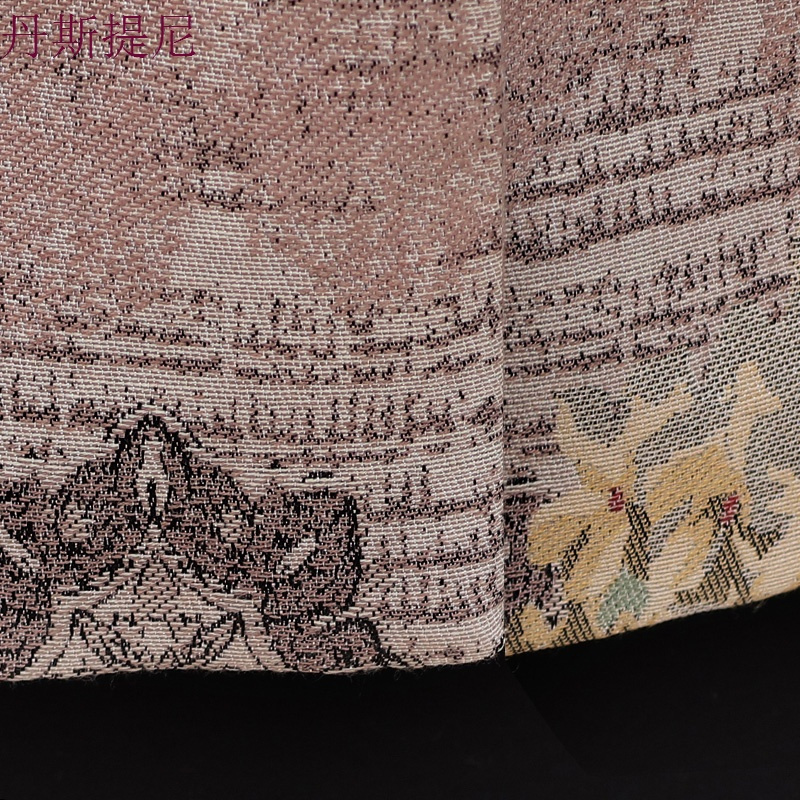 丹斯提尼